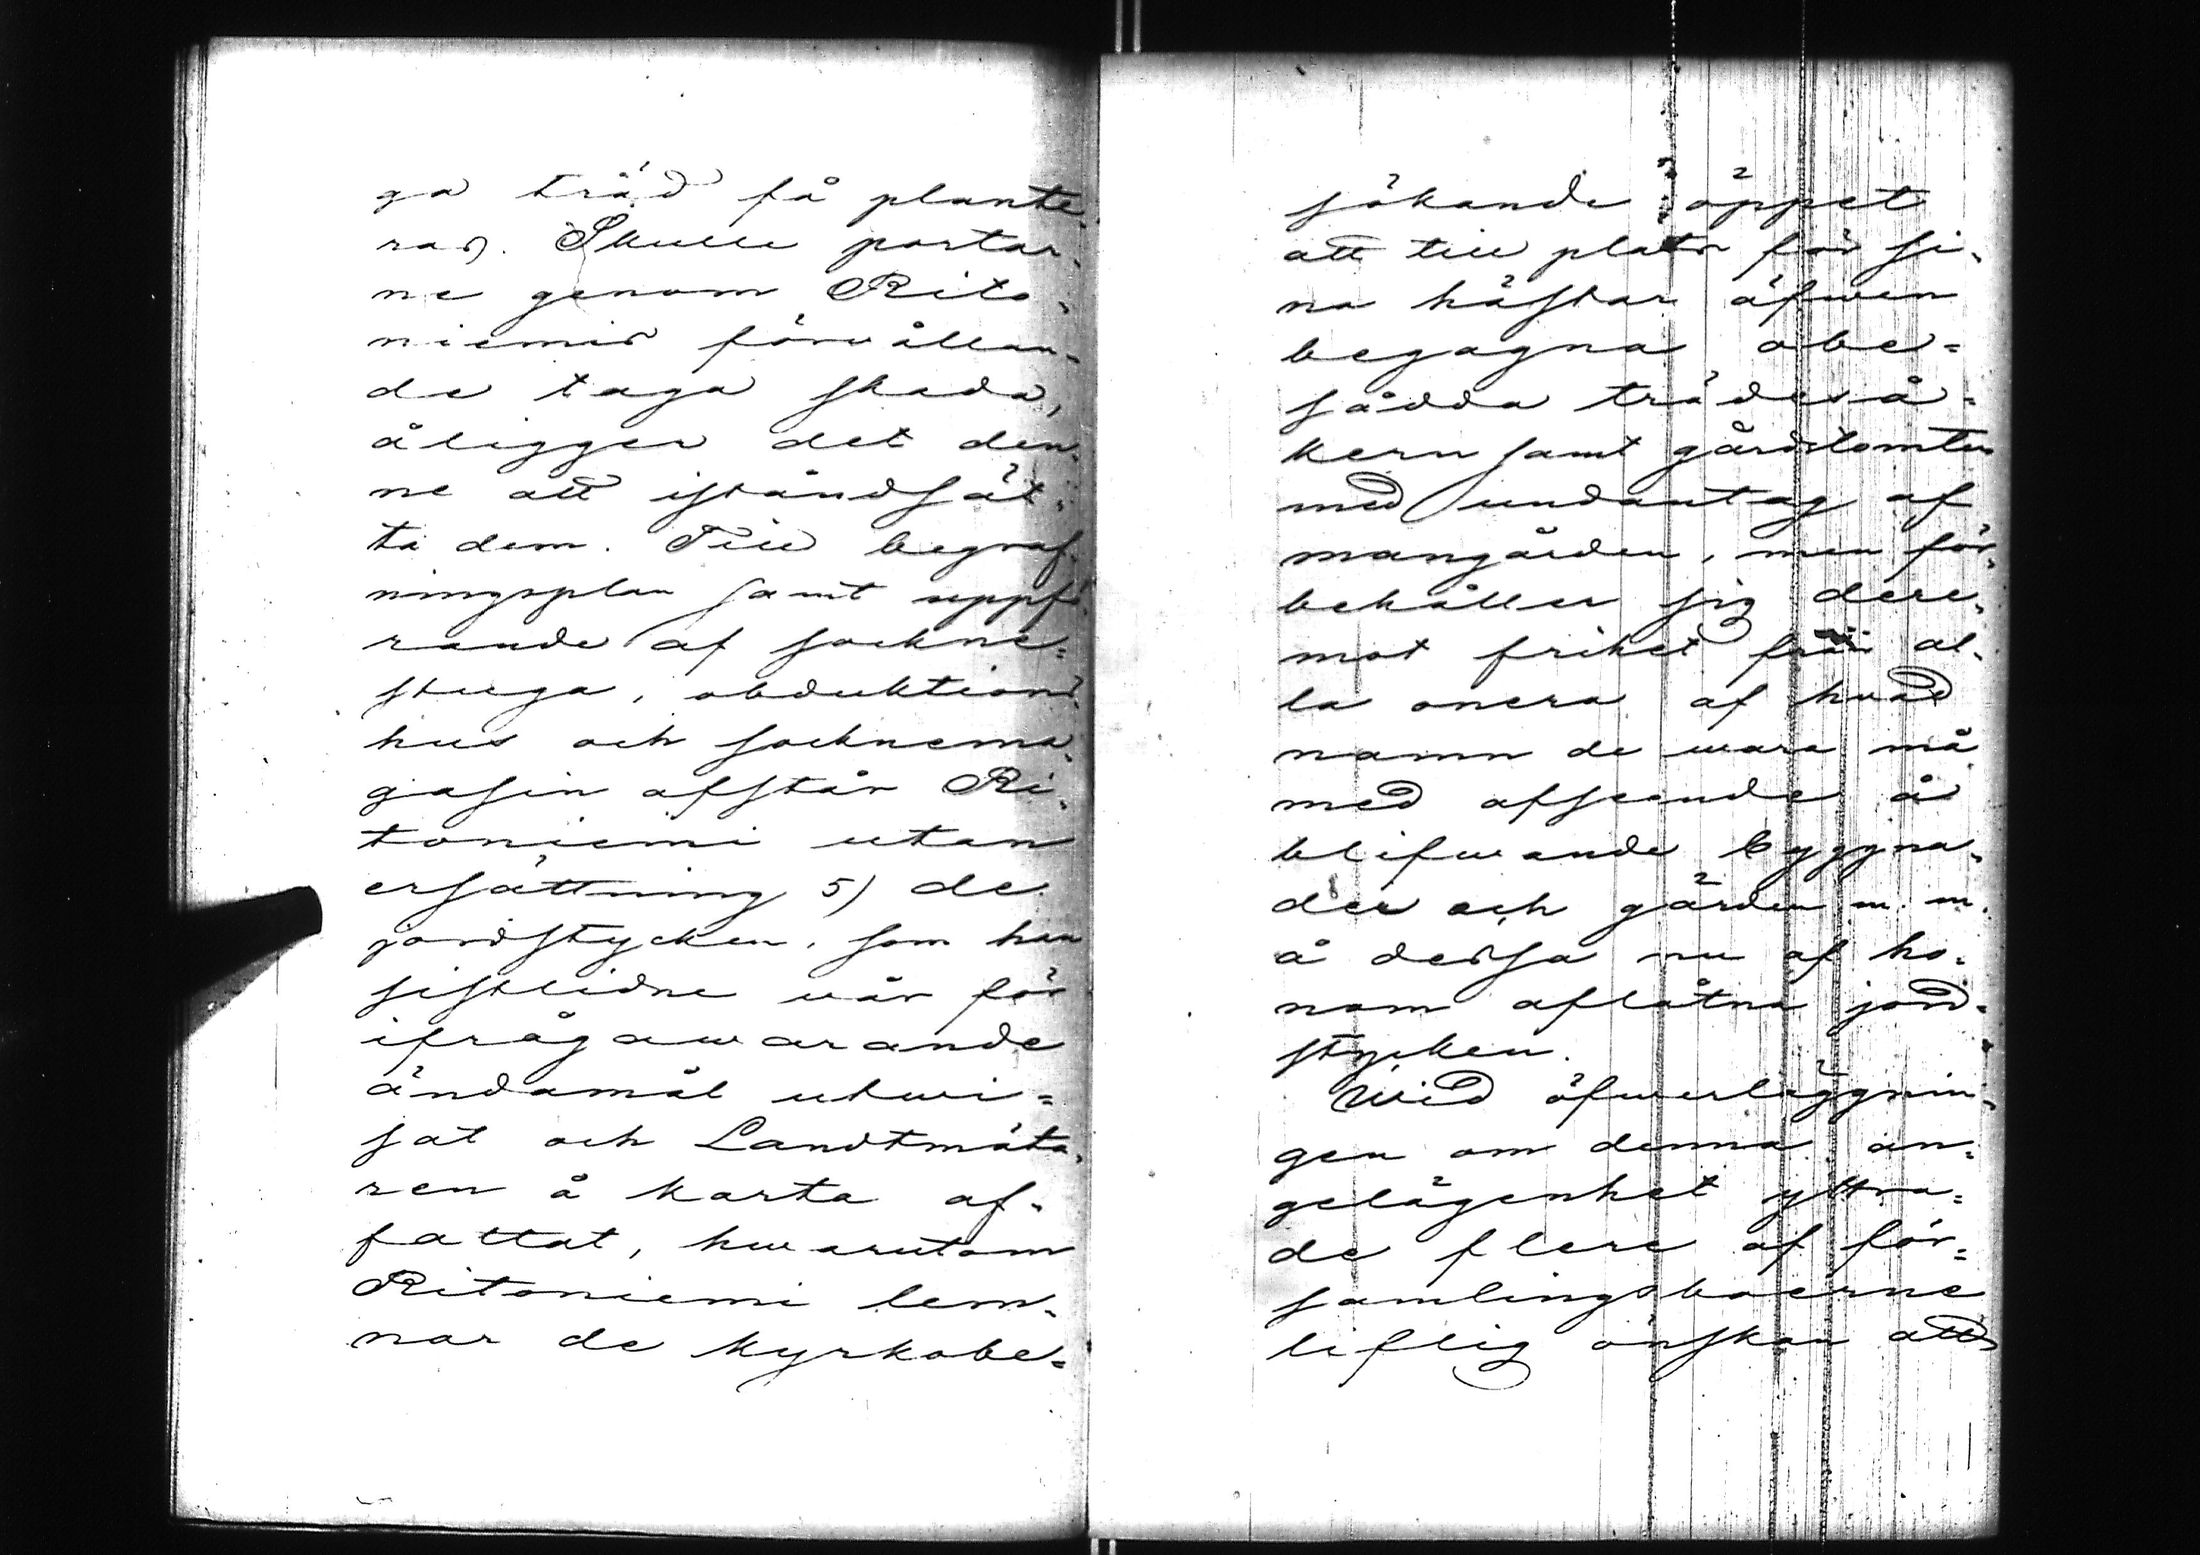 ga träd få plante-
ras. Skulle portar-
ne genom Rito-
niemis förvållan-
de taga skada,
åligger det den-
ne att iståndsät-
ta dem. Till begraf-
ningsplan samt uppfö-
rande af sockne-
stuga, obduktions-
hus och socknema-
gasin afstår Ri-
toniemi utan
ersättning 5) de
jordstycken, som han
sistlidne vår för
ifrågawarande
ändamål utwi-
sat och Landtmäta-
ren å karta af-
fattat, hwarutom
Ritoniemi lem-
nar de kyrkobe-
sökande öppet
att till plats för si-
na hästar äfwen
begagna obe-
sådda trädeså-
kern samt gårdstomten
med undantag af
mangården, men för-
behåller sig dere-
mot frihet från al-
la onera af hvad
namn de wara må
med afseende å
blifwande byggna-
der och gärden m. m.
å dessa nu af ho-
nom aflåtna jord-
stycken.
Wid öfwerläggnin-
gen om denna an-
gelägenhet yttra-
de flere af för-
samlingsboerne
liflig önskan att